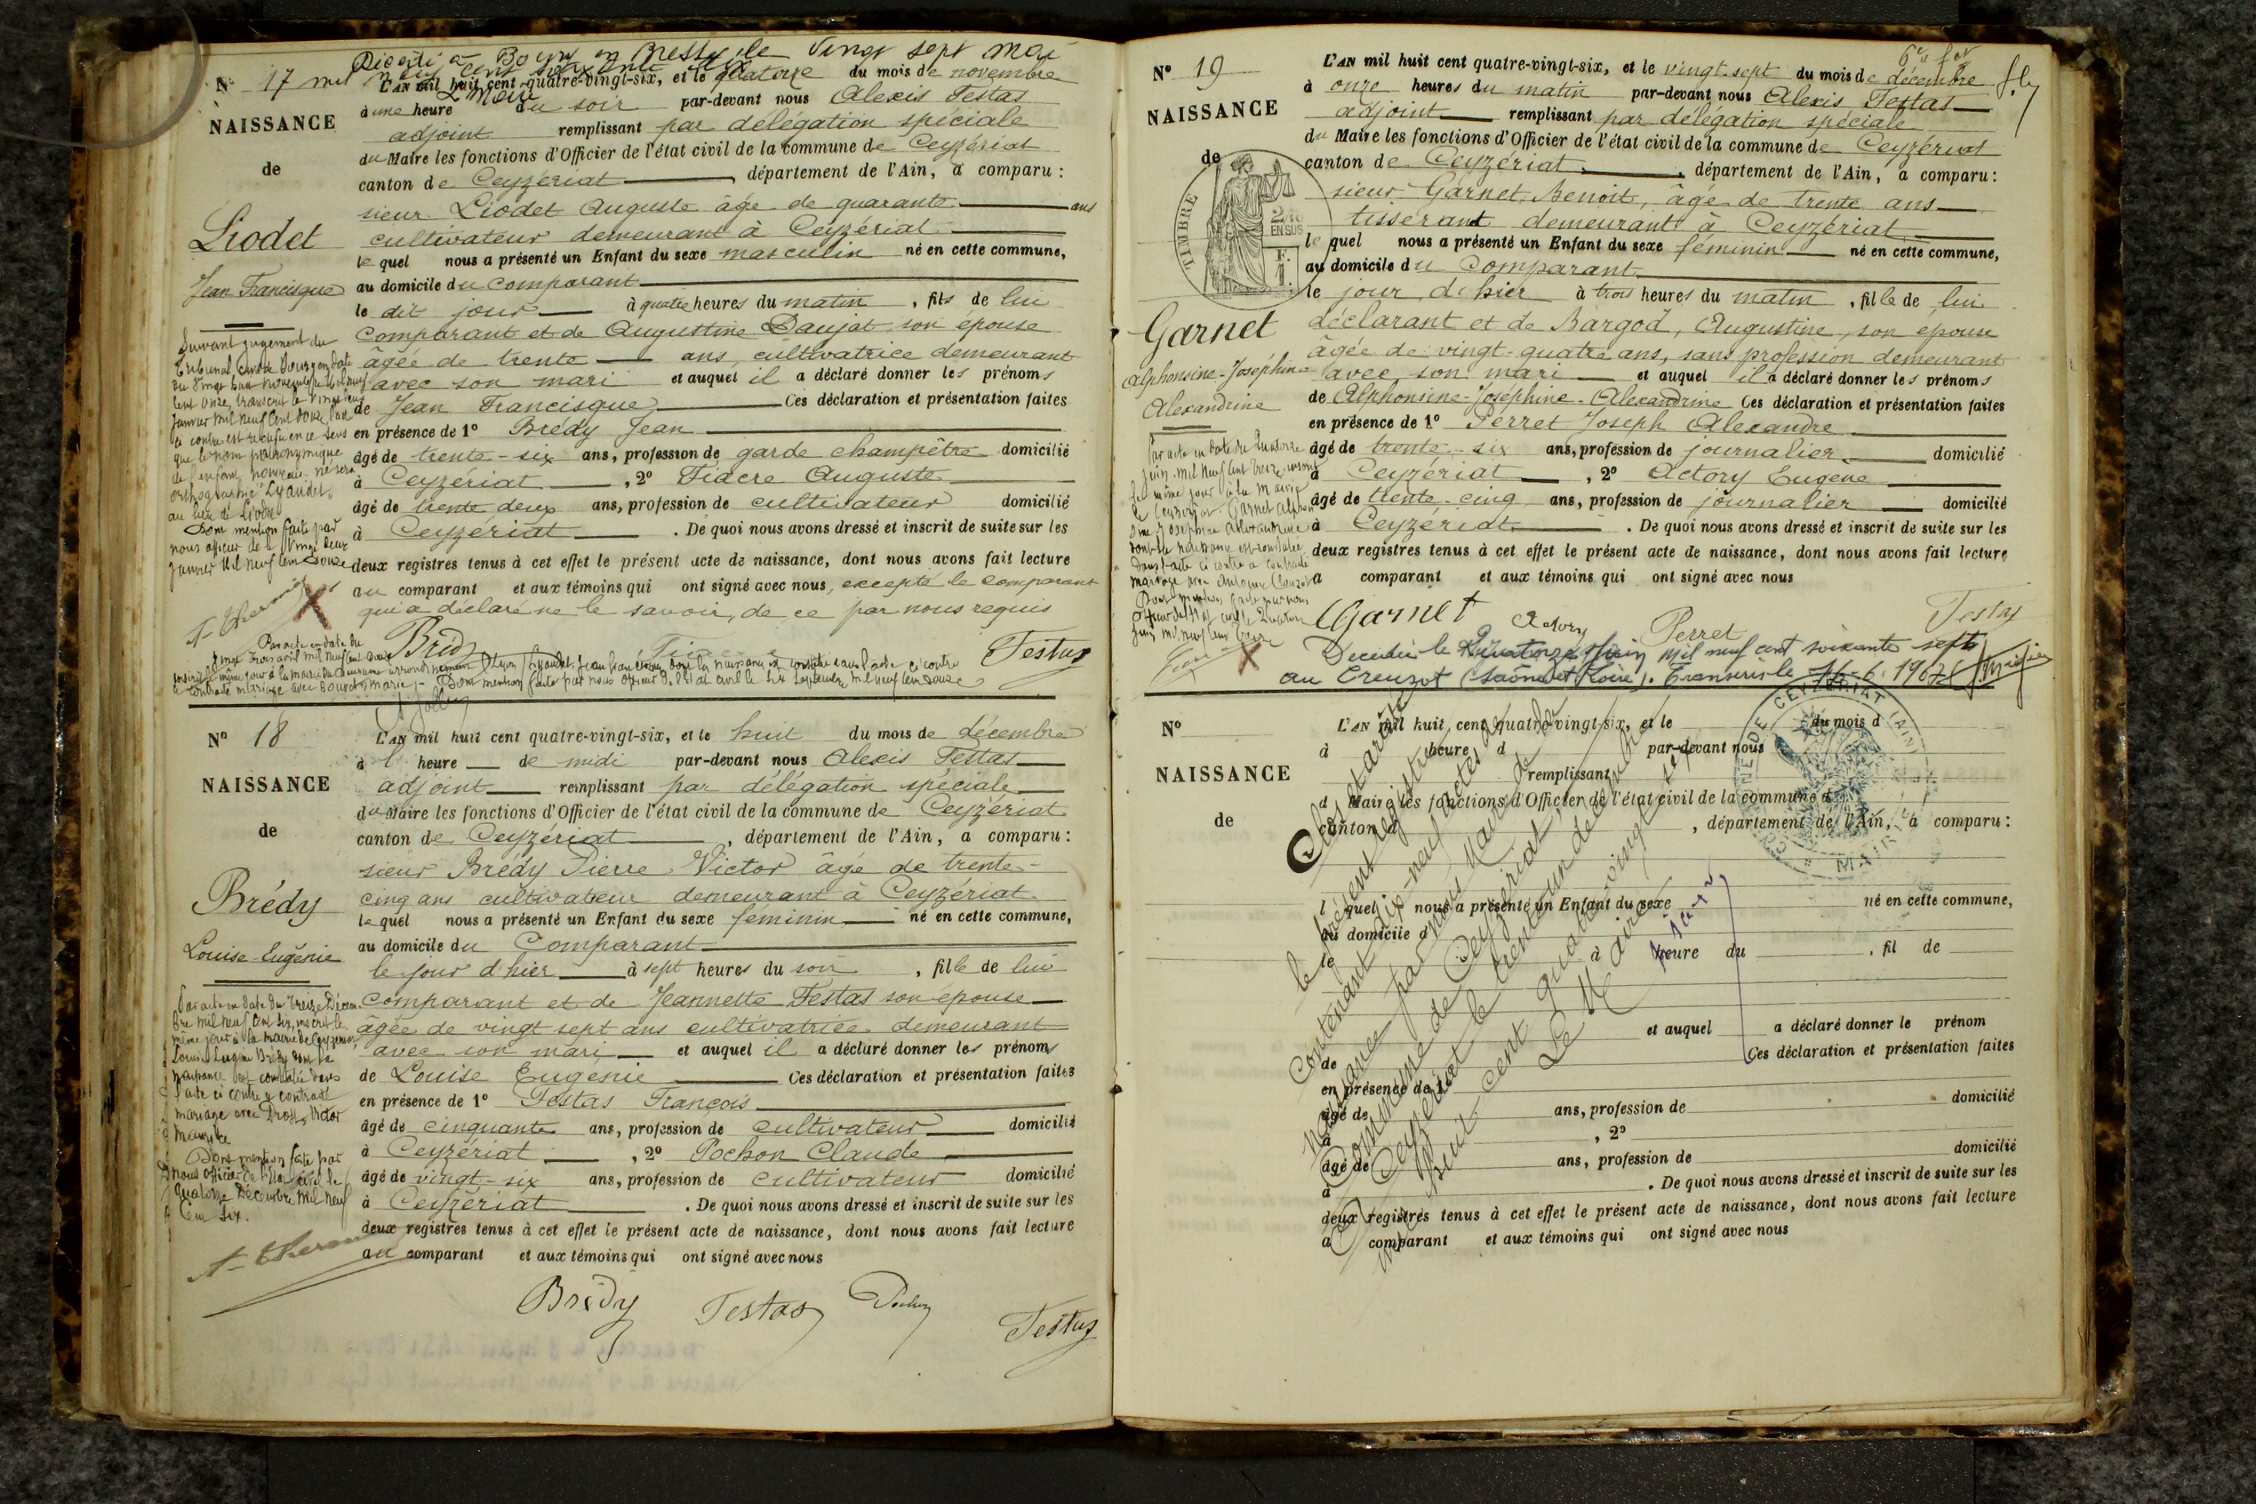 Décédé à Bourg en Bresse le vingt sept mai
mil neuf cent soixante
Le Maire
N° 17
NAISSANCE
de
Liodet
Jean Francisque
L'AN mil huit cent quatre-vingt-six, et le quatorze du mois de novembre
à une heure du soir par-devant nous Alexis Testas
adjoint remplissant par délégation spéciale
du Maire les fonctions d'Officier de l'état civil de la commune de Ceyzériat
canton de Ceyzériat, département de l'Ain, a comparu :
sieur Liodet Auguste âgé de quarante ans
cultivateur demeurant à Ceyzériat
le quel nous a présenté un Enfant du sexe masculin né en cette commune,
au domicile du comparant
le dit jour à quatre heures du matin, fils de lui
comparant et de Augustine Daujat son épouse
âgée de trente ans cultivatrice demeurant
avec son mari et auquel il a déclaré donner les prénoms
de Jean Francisque Ces déclaration et présentation faites
en présence de 1° Brédy Jean
âgé de trente-six ans, profession de garde champêtre domicilié
à Ceyzériat, 2° Fiacre Auguste
âgé de trente deux ans, profession de cultivateur domicilié
à Ceyzériat. De quoi nous avons dressé et inscrit de suite sur les
deux registres tenus à cet effet le présent acte de naissance, dont nous avons fait lecture
au comparant et aux témoins qui ont signé avec nous, excepté le comparant
qui a déclaré ne le savoir, de ce par nous requis
Suivant jugement du
Tribunal civil de Bourg en date
du vingt huit novembre mil neuf
cent onze, transcrit le vingt deux
janvier mil neuf cent douze l'acte
ci contre est rectifié en ce sens
que le nom patronymique
de l'enfant nouveau-né sera
orthographié Lyaudet
au lieu de Liodet
Dont mention faite par
nous officier de le vingt deux
janvier mil neuf cent douze
Brédy
Testas
Par acte en date du
vingt trois avril mil neuf cent douze
inscrit le même jour à la mairie du arrondissement Lyon, Lyaudet Jean Francisque dont la naissance est constatée dans l'acte ci contre
a contracté mariage avec Bouvet Marie - Dont mention faite par nous officier d'Etat civil le six septembre mil neuf cent douze
N° 18
NAISSANCE
de
Brédy
Louise-Eugénie
L'AN mil huit cent quatre-vingt-six, et le huit du mois de décembre
à l' heure de midi par-devant nous Alexis Testas
adjoint remplissant par délégation spéciale
du Maire les fonctions d'Officier de l'état civil de la commune de Ceyzériat
canton de Ceyzériat, département de l'Ain, a comparu :
sieur Brédy Pierre Victor âgé de trente-
cinq ans cultivateur demeurant à Ceyzériat
le quel nous a présenté un Enfant du sexe féminin né en cette commune,
au domicile du Comparant
le jour d'hier à sept heures du soir, fille de lui
comparant et de Jeannette Testas son épouse
âgée de vingt sept ans cultivatrice demeurant
avec son mari et auquel il a déclaré donner les prénoms
de Louise Eugénie Ces déclaration et présentation faites
en présence de 1° Testas François
âgé de cinquante ans, profession de cultivateur domicilié
à Ceyzériat, 2° Pochon Claude
âgé de vingt-six ans, profession de cultivateur domicilié
à Ceyzériat. De quoi nous avons dressé et inscrit de suite sur les
deux registres tenus à cet effet le présent acte de naissance, dont nous avons fait lecture
au comparant et aux témoins qui ont signé avec nous
Par acte en date du treize Décem
bre mil neuf cent six, inscrit le
même jour à la mairie de Ceyzériat
Louise Eugénie Brédy dont la
naissance est constatée dans
l'acte ci contre a contracté
mariage avec Victor
Maurice
Dont mention faite par
nous officier de l'Etat civil le
quatorze Décembre mil neuf
cent six.
Brédy Testas Pochon
Testas
N° 19
NAISSANCE
de
TIMBRE
2/10
EN SUS
F.
1.
Garnet
Alphonsine-Joséphine
Alexandrine
L'AN mil huit cent quatre-vingt-six, et le vingt-sept du mois de décembre
à onze heures du matin par-devant nous Alexis Testas
adjoint remplissant par délégation spéciale
du Maire les fonctions d'Officier de l'état civil de la commune de Ceyzériat
canton de Ceyzériat, département de l'Ain, a comparu :
sieur Garnet, Benoit, âgé de trente ans
tisserant demeurant à Ceyzériat
le quel nous a présenté un Enfant du sexe féminin né en cette commune,
au domicile du Comparant
le jour d'hier à trois heures du matin, fille de lui
déclarant et de Bargod, Augustine, son épouse
âgée de vingt-quatre ans, sans profession demeurant
avec son mari et auquel il a déclaré donner les prénoms
de Alphonsine-Joséphine-Alexandrine Ces déclaration et présentation faites
en présence de 1° Perret Joseph Alexandre
âgé de trente-six ans, profession de journalier domicilié
à Ceyzériat, 2° Actory Eugène
âgé de trente-cinq ans, profession de journalier domicilié
à Ceyzériat. De quoi nous avons dressé et inscrit de suite sur les
deux registres tenus à cet effet le présent acte de naissance, dont nous avons fait lecture
a comparant et aux témoins qui ont signé avec nous
Par acte en date du quatorze
juin mil neuf cent treize inscrit
le même jour à la mairie
de Ceyzériat Garnet Alphon
sine Joséphine Alexandrine
dont la naissance est constatée
dans l'acte ci contre a contracté
mariage avec
Dont mention faite par nous
officier de l'Etat civil le quatorze
juin mil neuf cent treize
Garnet Actory Perret Testas
Décédée le quatorze juin mil neuf cent soixante sept
au Creuzot (Saône et Loire). Transcrit le 16-6-1967
N°
NAISSANCE
de
L'AN mil huit cent quatre-vingt-six, et le du mois d
à heure d par-devant nous
remplissant
d Maire les fonctions d'Officier de l'état civil de la commune d
canton d, département de l'Ain, a comparu :
l quel nous a présenté un Enfant du sexe né en cette commune,
au domicile d
le à heure du, fil de
et auquel a déclaré donner le prénom
de Ces déclaration et présentation faites
en présence de 1°
âgé de ans, profession de domicilié
à, 2°
âgé de ans, profession de domicilié
à. De quoi nous avons dressé et inscrit de suite sur les
deux registres tenus à cet effet le présent acte de naissance, dont nous avons fait lecture
a comparant et aux témoins qui ont signé avec nous
Clos et arrêté
le présent registre
contenant dix-neuf actes de
naissance par nous Maire de la
Commune de Ceyzériat,
Ceyzériat le trente un décembre
mil huit cent quatre-vingt-six
Le Maire
COMMUNE DE CEYZERIAT (AIN)
MAIRIE